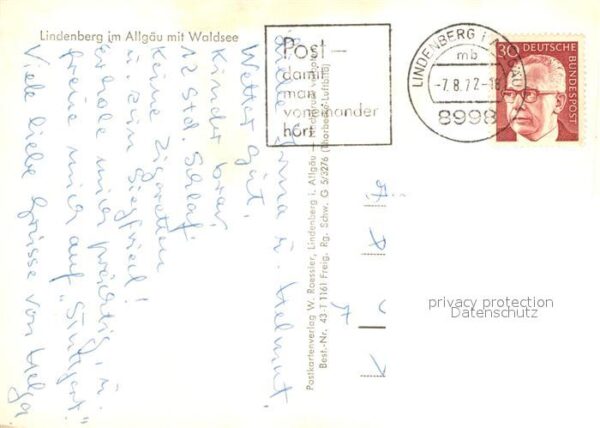 Lindenberg im Allgäu mit Waldsee
Post –
damit
man
voneinander
hört
LINDENBERG i ALLGÄU
mb
-7.8.72-18
8998
30 DEUTSCHE
BUNDESPOST
Liebe Anna u. Helmut.
Wetter gut,
Kinder brav,
12 Std. Schlaf.
Keine Zigaretten
u. kein Siegfried!
Erhole mich prächtig u.
freue mich auf „Stuttgart"
Viele liebe Grüsse von Helga
Postkartenverlag W. Roessler, Lindenberg i. Allgäu –
Best.-Nr. 43-T 1161 Freig. Rg. Schw. G 5/3276 (Thorbecke-Luftbild)
privacy protection
Datenschutz